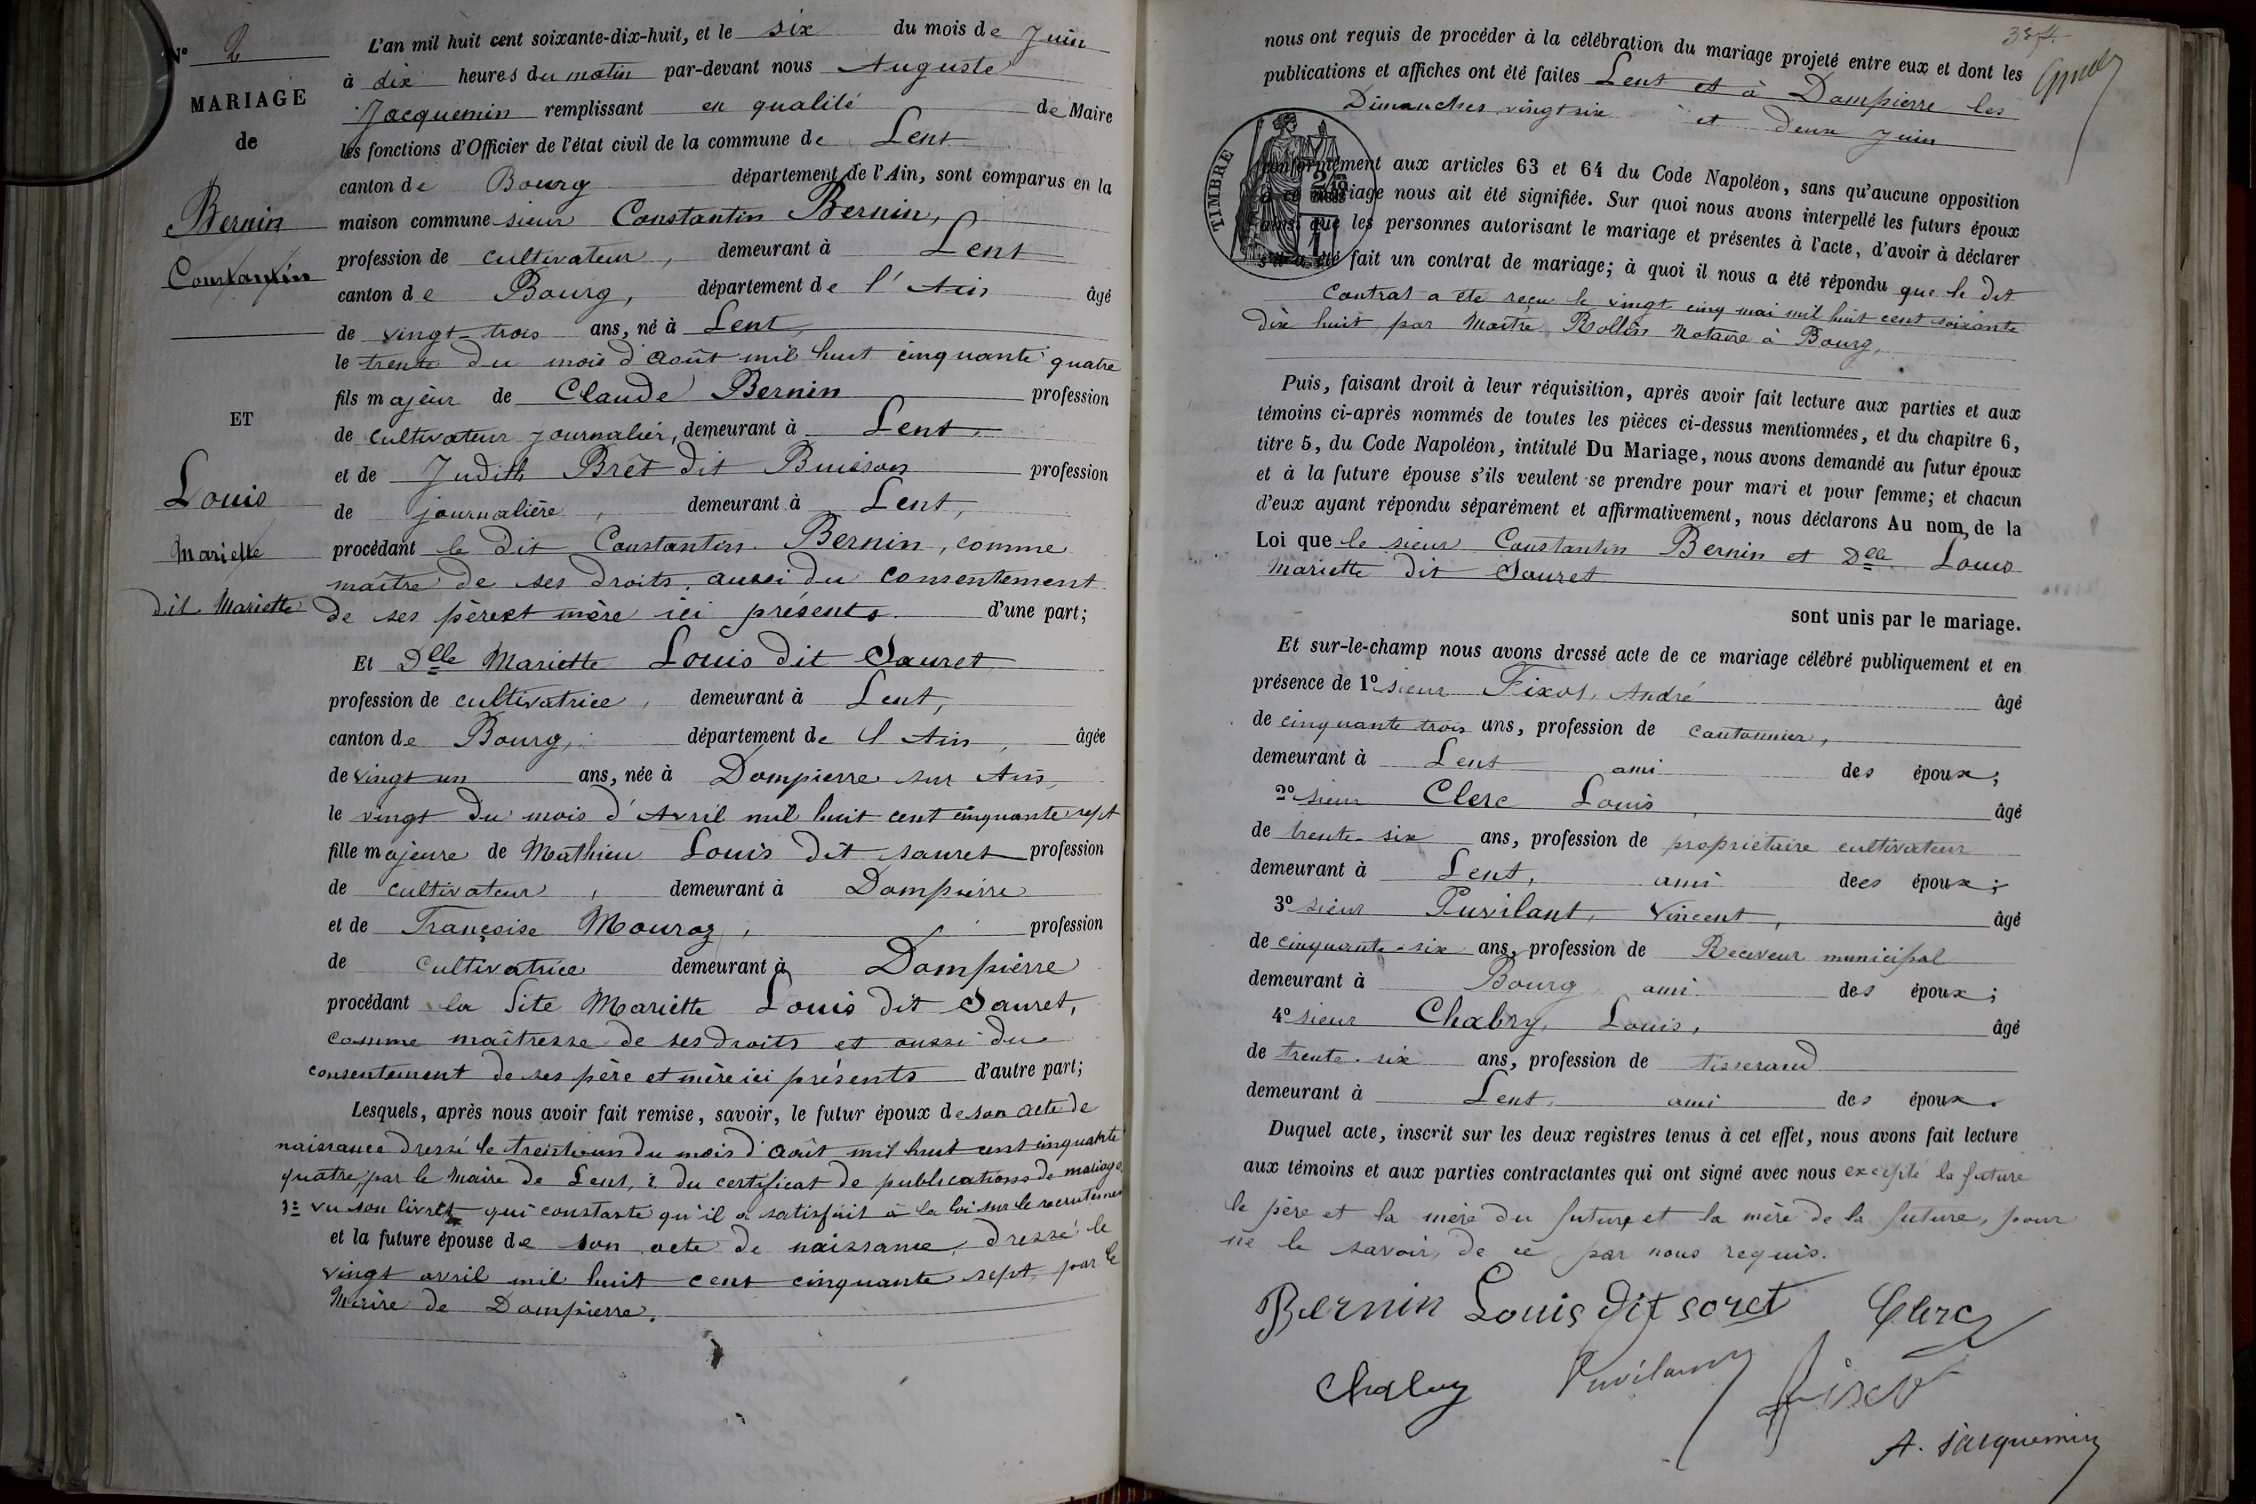 N° 2
MARIAGE
de
Bernin
Constantin
ET
Louis
Mariette
dit Mariette
L'an mil huit cent soixante-dix-huit, et le six du mois de Juin
à dix heures du matin par-devant nous Auguste
Jacquemin remplissant en qualité de Maire
les fonctions d'Officier de l'état civil de la commune de Lent
canton de Bourg département de l'Ain, sont comparus en la
maison commune sieur Constantin Bernin,
profession de cultivateur, demeurant à Lent
canton de Bourg, département de l'Ain âgé
de vingt-trois ans, né à Lent,
le trente du mois d'Août mil huit cinquante quatre
fils majeur de Claude Bernin profession
de cultivateur journalier, demeurant à Lent,
et de Judith Brêt dit Buisson profession
de journalière, demeurant à Lent,
procédant le dit Constantin Bernin, comme
maître de ses droits, aussi du consentement
de ses père et mère ici présents d'une part;
Et Delle Mariette Louis dit Sauret
profession de cultivatrice, demeurant à Lent,
canton de Bourg, département de l'Ain, âgée
de vingt un ans, née à Dompierre sur Ain,
le vingt du mois d'Avril mil huit cent cinquante sept
fille majeure de Mathieu Louis dit sauret profession
de cultivateur, demeurant à Dompierre
et de Françoise Mouroz, profession
de cultivatrice demeurant à Dompierre
procédant la dite Mariette Louis dit Sauret,
comme maîtresse de ses droits et aussi du
consentement de ses père et mère ici présents d'autre part;
Lesquels, après nous avoir fait remise, savoir, le futur époux de son acte de
naissance dressé le trente un du mois d'Août mil huit cent cinquante
quatre, par le Maire de Lent, 2 du certificat de publications de mariage
3° vu son livret qui constate qu'il a satisfait à la loi sur le recrutement
et la future épouse de son acte de naissance, dressé le
vingt avril mil huit cent cinquante sept, par le
Maire de Dompierre.
nous ont requis de procéder à la célébration du mariage projeté entre eux et dont les
publications et affiches ont été faites Lent et à Dompierre les
Dimanches vingt six et deux Juin
TIMBRE
conformément aux articles 63 et 64 du Code Napoléon, sans qu'aucune opposition
à ce mariage nous ait été signifiée. Sur quoi nous avons interpellé les futurs époux
ainsi que les personnes autorisant le mariage et présentes à l'acte, d'avoir à déclarer
s'il a été fait un contrat de mariage; à quoi il nous a été répondu que le dit
Contrat a été reçu le vingt cinq mai mil huit cent soixante
dix huit, par Maître Rollin Notaire à Bourg,
Puis, faisant droit à leur réquisition, après avoir fait lecture aux parties et aux
témoins ci-après nommés de toutes les pièces ci-dessus mentionnées, et du chapitre 6,
titre 5, du Code Napoléon, intitulé Du Mariage, nous avons demandé au futur époux
et à la future épouse s'ils veulent se prendre pour mari et pour femme; et chacun
d'eux ayant répondu séparément et affirmativement, nous déclarons Au nom de la
Loi que le sieur Constantin Bernin et Delle Louis
Mariette dit Sauret
sont unis par le mariage.
Et sur-le-champ nous avons dressé acte de ce mariage célébré publiquement et en
présence de 1° sieur Fixot, André âgé
de cinquante trois ans, profession de cantonnier,
demeurant à Lent ami des époux;
2° sieur Clerc Louis, âgé
de trente-six ans, profession de propriétaire cultivateur
demeurant à Lent, ami des époux;
3° sieur Puvilant, Vincent, âgé
de cinquante-six ans, profession de Receveur municipal
demeurant à Bourg ami des époux;
4° sieur Chabry, Louis, âgé
de trente-six ans, profession de tisserand
demeurant à Lent, ami des époux.
Duquel acte, inscrit sur les deux registres tenus à cet effet, nous avons fait lecture
aux témoins et aux parties contractantes qui ont signé avec nous excepté la future
le père et la mère du futur et la mère de la future, pour
ne le savoir, de ce par nous requis.
Bernin Louis dit soret Clerc
Chabry Puvilant Fixot
A. Jacquemin